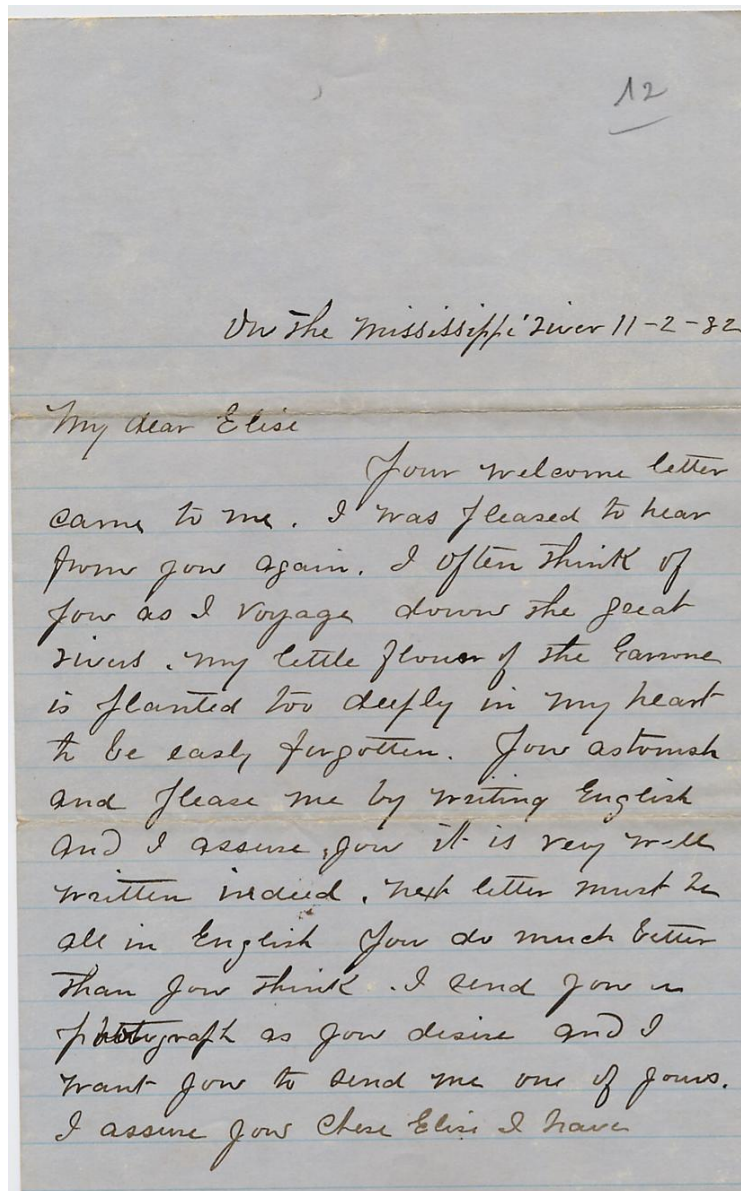 12
On the Mississippi river 11-2-82
My dear Elise
Your welcome letter
came to me. I was pleased to hear
from you again. I often think of
you as I voyage down the great
rivers. My little flower of the Garrone
is planted too deeply in my heart
to be easly forgotten. You astonish
and please me by writing English
and I assure you it is very well
written indeed. Next letter must be
all in English You do much better
than you think. I send you a
photograph as you desire and I
want you to send me one of yours.
I assure you Chere Elise I have